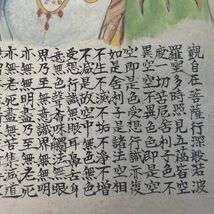 觀自在菩薩行深般若波
羅蜜多時照見五蘊皆空
度一切苦厄舍利子色不
異空空不異色色即是空
空即是色受想行識亦復
如是舍利子是諸法空相
不生不滅不垢不淨不增
不減是故空中無色無
受想行識無眼耳鼻舌身
意無色聲香味觸法無眼
界乃至無意識界無無明
亦無無明盡乃至無老死
亦無老死盡無苦集滅道